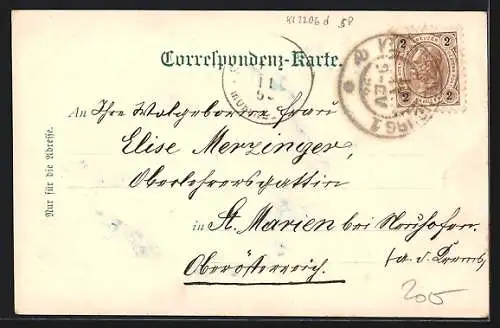 H12206d 58
Correspondenz-Karte.
2 2
2 2
11
An Ihre Wolgeboren Frau
Elise Merzinger,
Oberlehrersgattin
in St. Marien bei Neuhofen
(a. d. Krems)
Oberösterreich.
Nur für die Adresse.
205